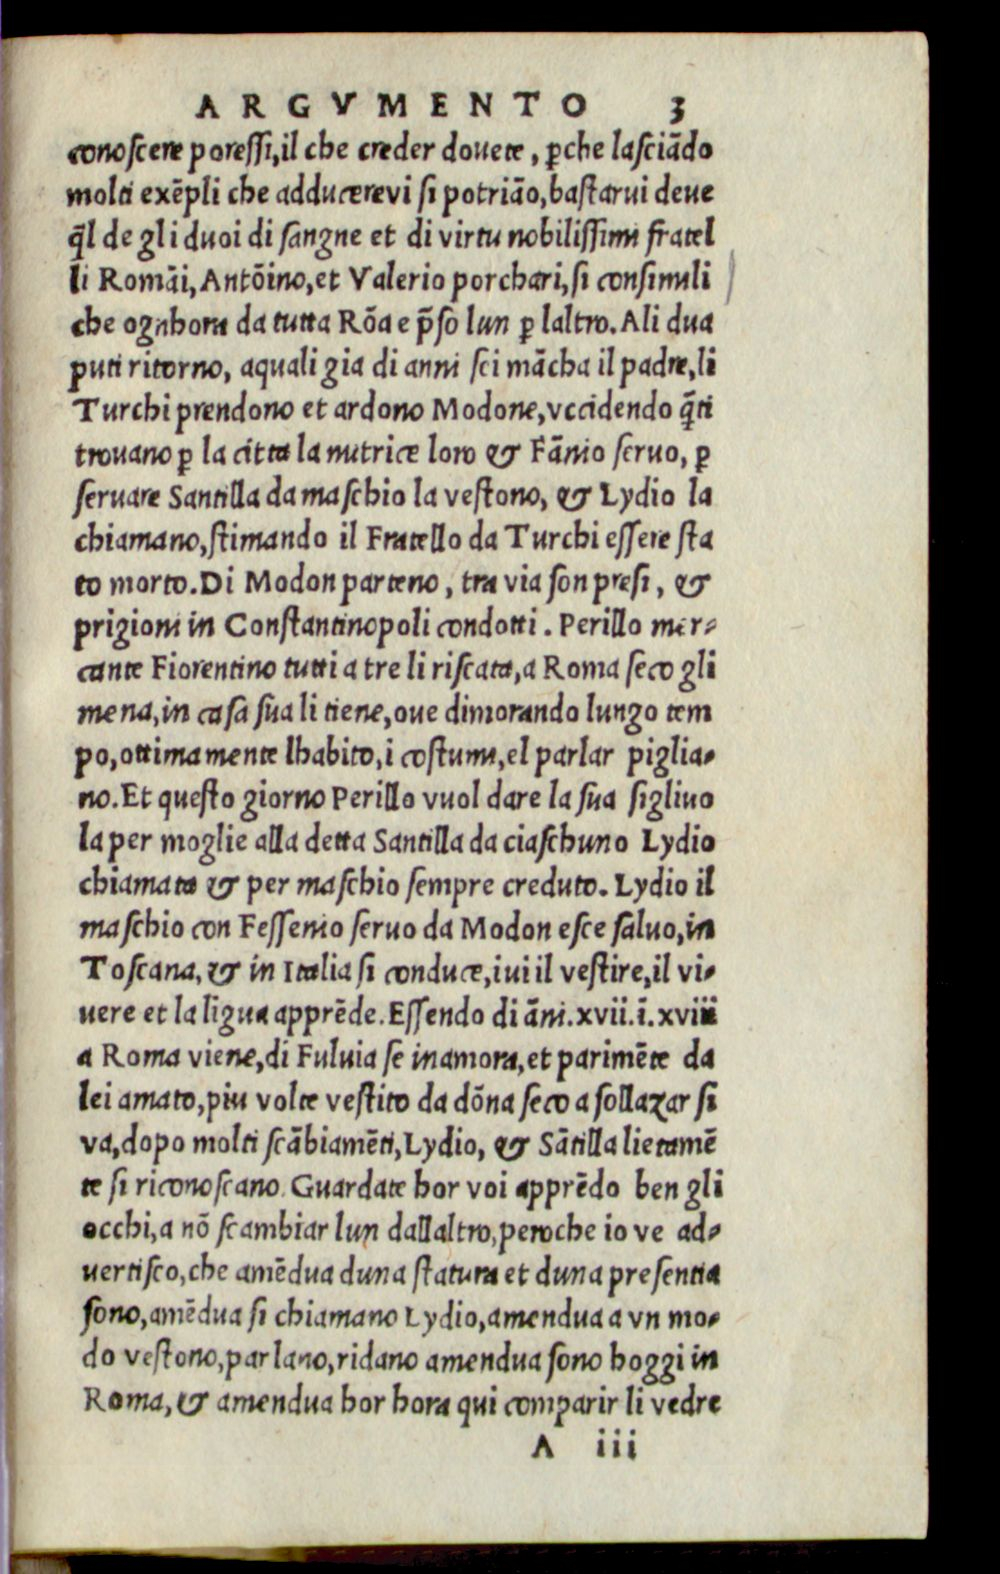 ARGVMENTO 3
conoscere poressi,il che creder douete, ꝑche lasciãdo
molti exẽpli che adducerevi si potrião,bastarui deue
q̃l de gli duoi di sangne et di virtu nobilissimi fratel
li Romãi,Antõino,et Valerio porchari,si consimili
che ognhora da tutta Rõa e p̃so lun ꝑ laltro.Ali dua
puti ritorno, aquali gia di anni sei mãcha il padre,li
Turchi prendono et ardono Modone,vccidendo q̃ti
trouano ꝑ la citta la nutrice loro & Fãnio seruo, ꝑ
seruare Santilla da maschio la vestono, & Lydio la
chiamano,stimando il Fratello da Turchi essere sta
to morto.Di Modon parteno, tra via son presi, &
prigioni in Constantinopoli condotti. Perillo mer-
cante Fiorentino tutti a tre li riscata,a Roma seco gli
mena,in casa sua li tiene,oue dimorando lungo tem
po,ottimamente lhabito,i costumi,el parlar piglia-
no.Et questo giorno Perillo vuol dare la sua sigliuo
la per moglie alla detta Santilla da ciaschuno Lydio
chiamata & per maschio sempre creduto. Lydio il
maschio con Fessenio seruo da Modon esce saluo,in
Toscana, & in Italia si conduce,iui il vestire,il vi-
uere et la ligua apprẽde.Essendo di ãni.xvii.ĩ.xviii
a Roma viene,di Fuluia se inamora,et parimẽte da
lei amato,piu volte vestito da dõna seco a sollazar si
va,dopo molti scãbiamẽti,Lydio, & Sãtilla lietamẽ
te si riconoscano. Guardate hor voi apprẽdo ben gli
occhi,a nõ scambiar lun dallaltro,peroche io ve ad-
uertisco,che amẽdua duna statura et duna presentia
sono,amẽdua si chiamano Lydio,amendua a vn mo-
do vestono,parlano,ridano amendua sono hoggi in
Roma,& amendua hor hora qui comparir li vedre
A iii